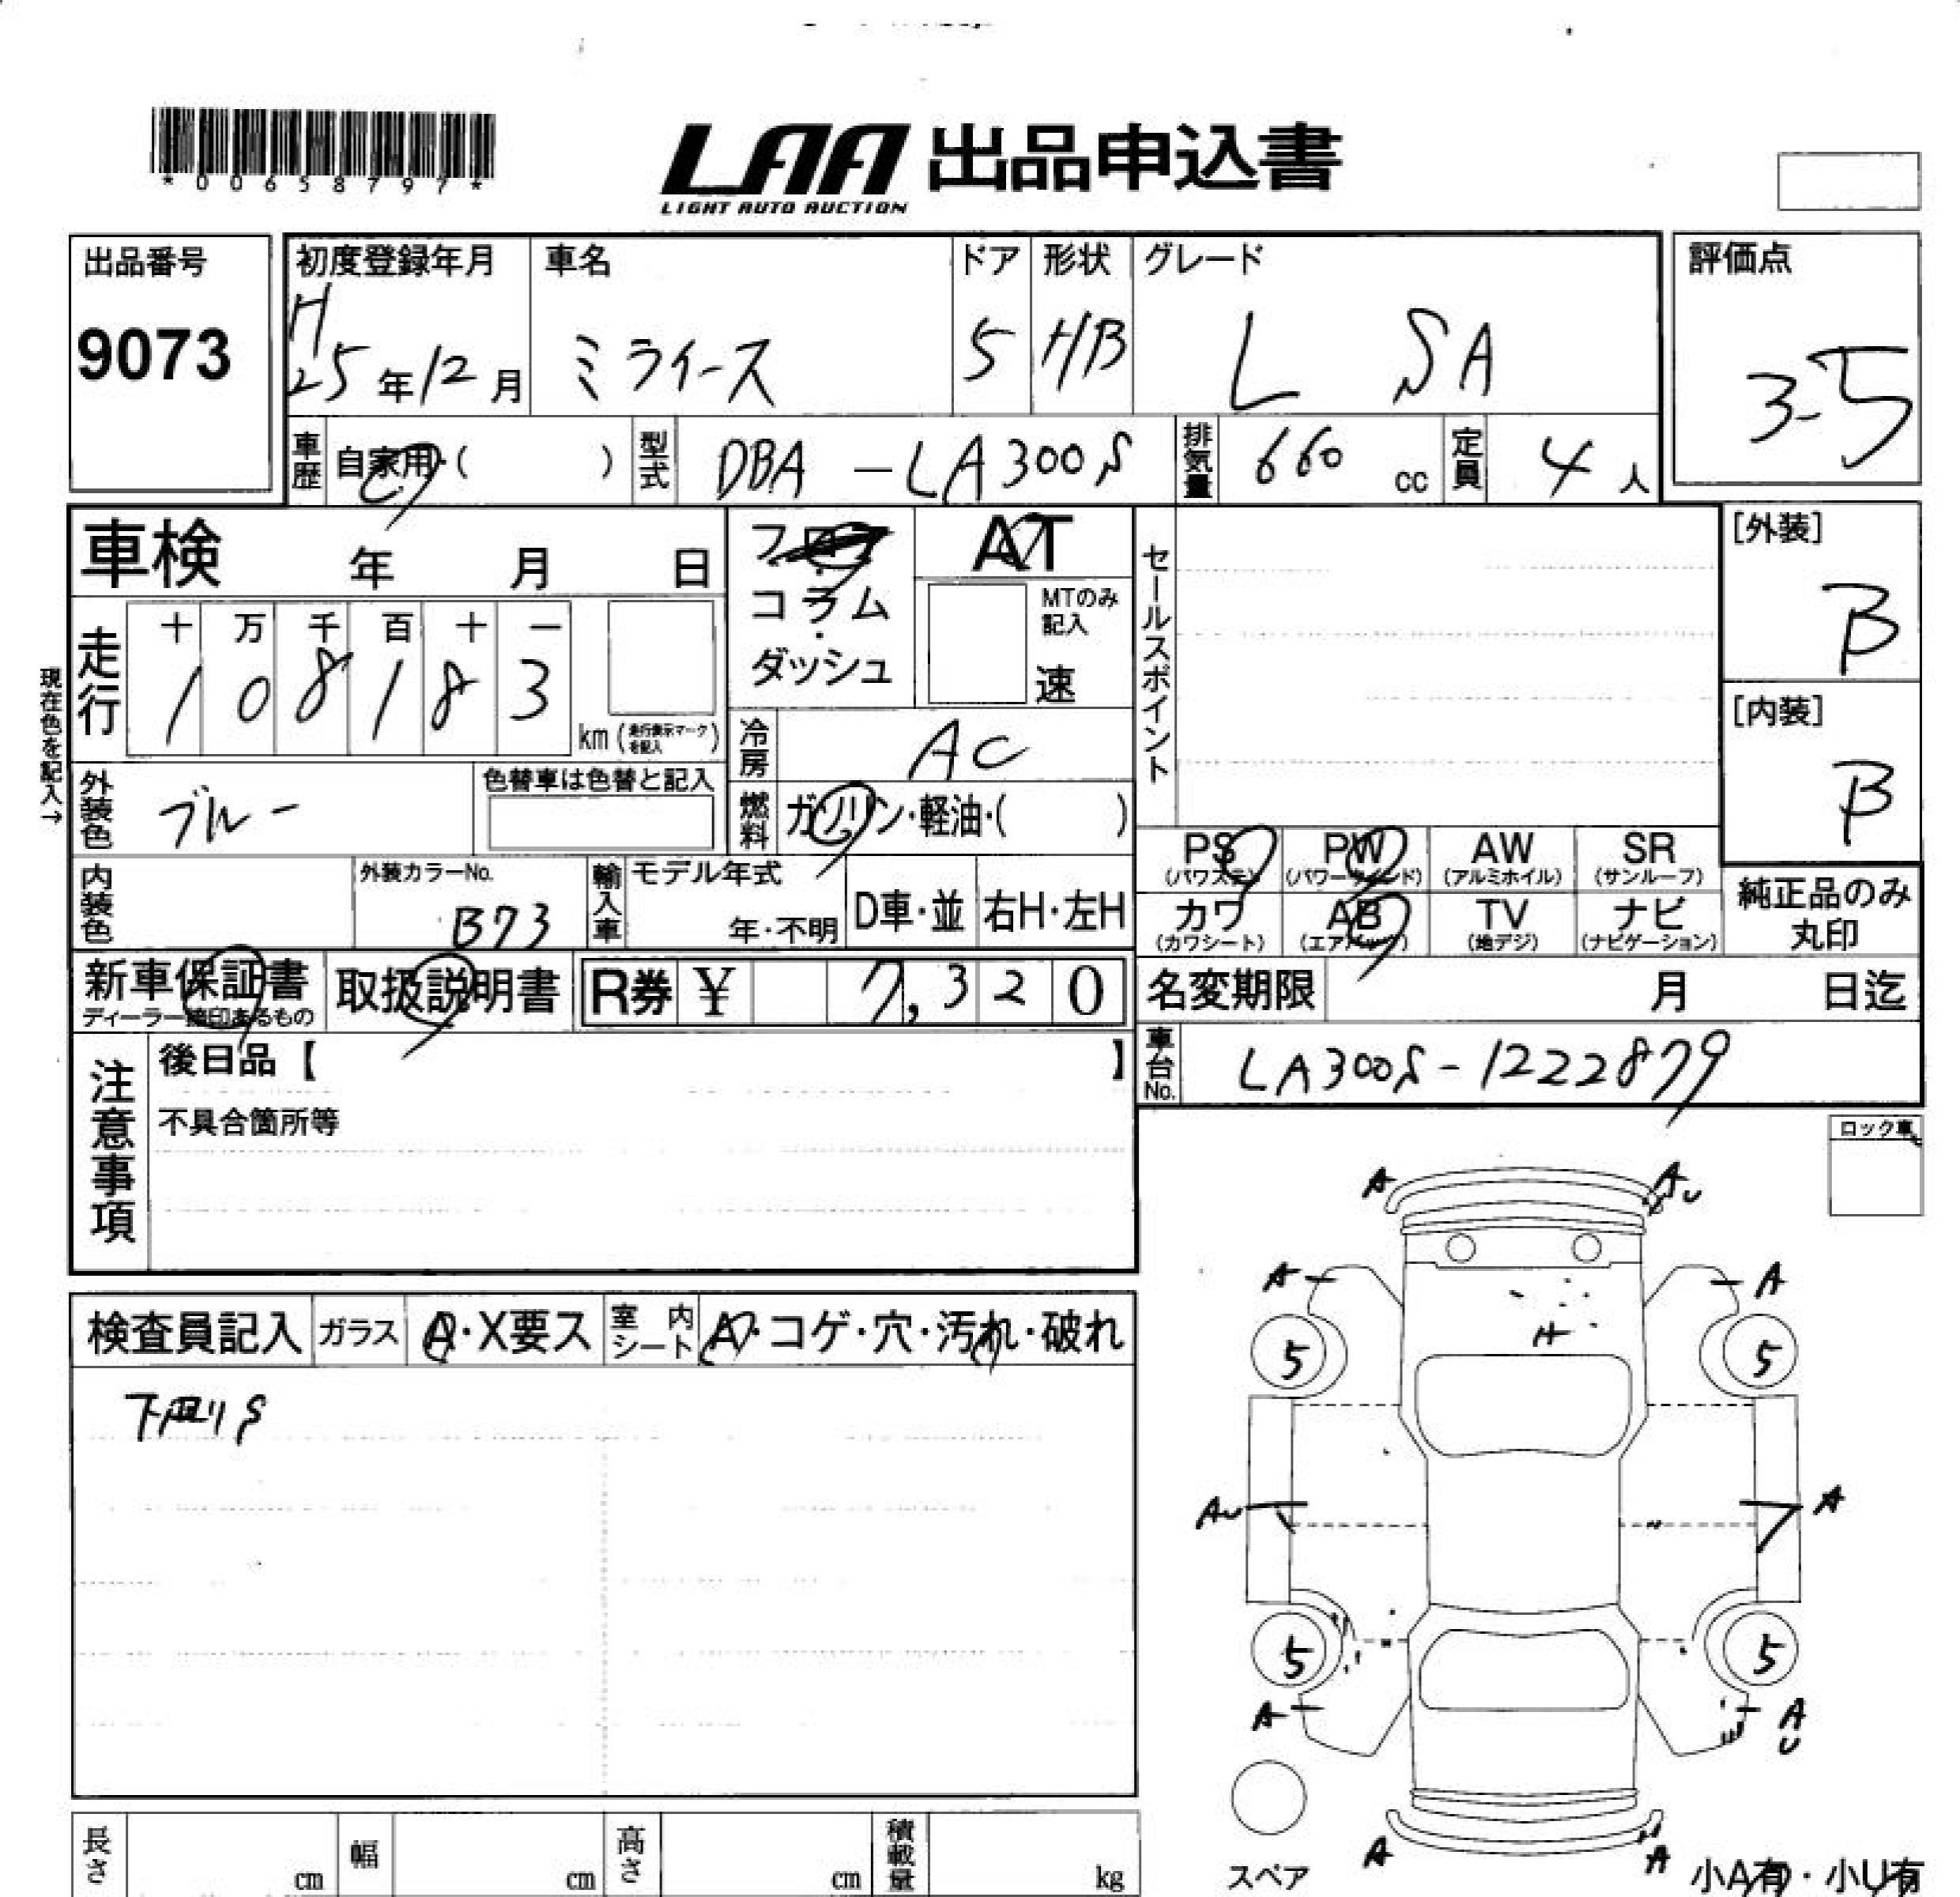 *00658797*
LAA 出品申込書
LIGHT AUTO AUCTION
出品番号
9073
初度登録年月
H
25年12月
車名
ミライース
ドア
5
形状
HB
グレード
L SA
評価点
3.5
車歴
自家用・( )
型式
DBA-LA300S
排気量
660 cc
定員
4人
車検 年 月 日
フロア
・
コラム
・
ダッシュ
AT
MTのみ
記入
速
セールスポイント
[外装]
B
[内装]
B
現在色を記入→
走行
十 万 千 百 十 一
1 0 8 1 8 3
km (走行表示マークを記入)
冷房
AC
外装色
ブルー
色替車は色替と記入
燃料
ガソリン・軽油・( )
内装色
外装カラーNo.
B73
輸入車
モデル年式
年・不明
D車・並
右H・左H
PS
(パワステ)
PW
(パワーウインド)
AW
(アルミホイル)
SR
(サンルーフ)
カワ
(カワシート)
AB
(エアバッグ)
TV
(地デジ)
ナビ
(ナビゲーション)
純正品のみ
丸印
新車保証書
ディーラー捺印あるもの
取扱説明書
R券 ¥ 7,320
名変期限 月 日迄
車台No.
LA300S-1222879
注意事項
後日品【 】
不具合箇所等
ロック車
検査員記入
ガラス
A・X要ス
室内シート
A・コゲ・穴・汚れ・破れ
下回りS
A AU
A A
5 5
AU A
5 5
A AU
A A
スペア
小A有・小U有
長さ cm
幅 cm
高さ cm
積載量 kg